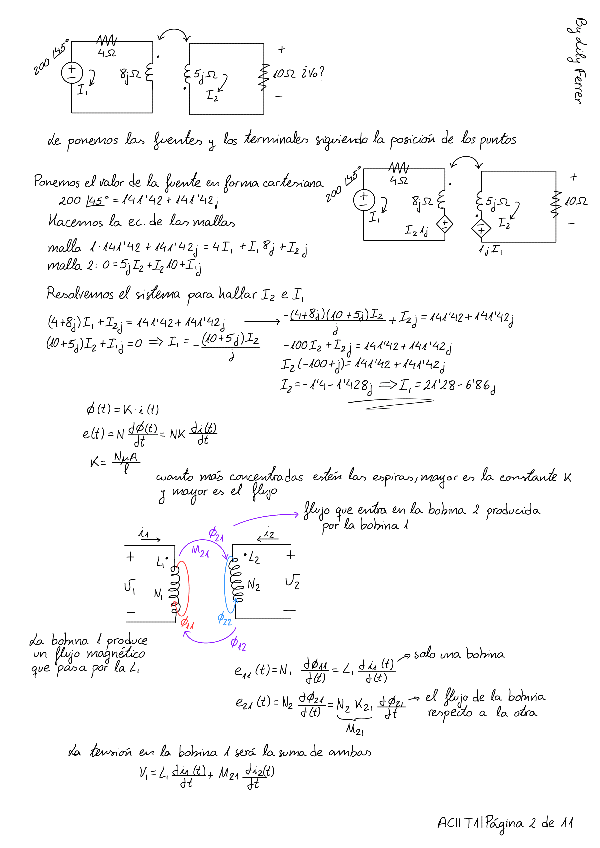 By Lily Ferrer
200 |45° 4Ω 8jΩ I₁ 5jΩ I₂ + 10Ω ¿Vo? −
Le ponemos las fuentes y los terminales siguiendo la posición de los puntos
Ponemos el valor de la fuente en forma cartesiana
200 |45° = 141'42 + 141'42j
Hacemos la ec. de las mallas
malla 1: 141'42 + 141'42j = 4I₁ + I₁8j + I₂j
malla 2: 0 = 5jI₂ + I₂10 + I₁j
200 |45° 4Ω I₁ 8jΩ I₂1j 5jΩ I₂ 1jI₁ + 10Ω −
Resolvemos el sistema para hallar I₂ e I₁
(4+8j)I₁ + I₂j = 141'42 + 141'42j → -(4+8j)(10+5j)I₂/j + I₂j = 141'42 + 141'42j
(10+5j)I₂ + I₁j = 0 ⇒ I₁ = -(10+5j)I₂/j
-100I₂ + I₂j = 141'42 + 141'42j
I₂(-100+j) = 141'42 + 141'42j
I₂ = -1'4 - 1'428j ⇒ I₁ = 21'28 - 6'86j
ϕ(t) = K·i(t)
e(t) = N dϕ(t)/dt = NK di(t)/dt
K = NμA/l
cuanto más concentradas estén las espiras, mayor es la constante K
y mayor es el flujo
flujo que entra en la bobina 2 producida
por la bobina 1
i₁ ϕ₂₁ i₂
+ L₁ M₂₁ L₂ +
V₁ N₁ N₂ V₂
− ϕ₁₁ ϕ₂₂ −
ϕ₁₂
La bobina 1 produce
un flujo magnético
que pasa por la L₁
e₁₁(t) = N₁ dϕ₁₁/d(t) = L₁ di₁(t)/d(t) → solo una bobina
e₂₁(t) = N₂ dϕ₂₁/d(t) = N₂ K₂₁ dϕ₂₁/dt → el flujo de la bobina
respecto a la otra
M₂₁
La tensión en la bobina 1 será la suma de ambas
V₁ = L₁ di₁(t)/dt + M₂₁ di₂(t)/dt
ACII T1|Página 2 de 11